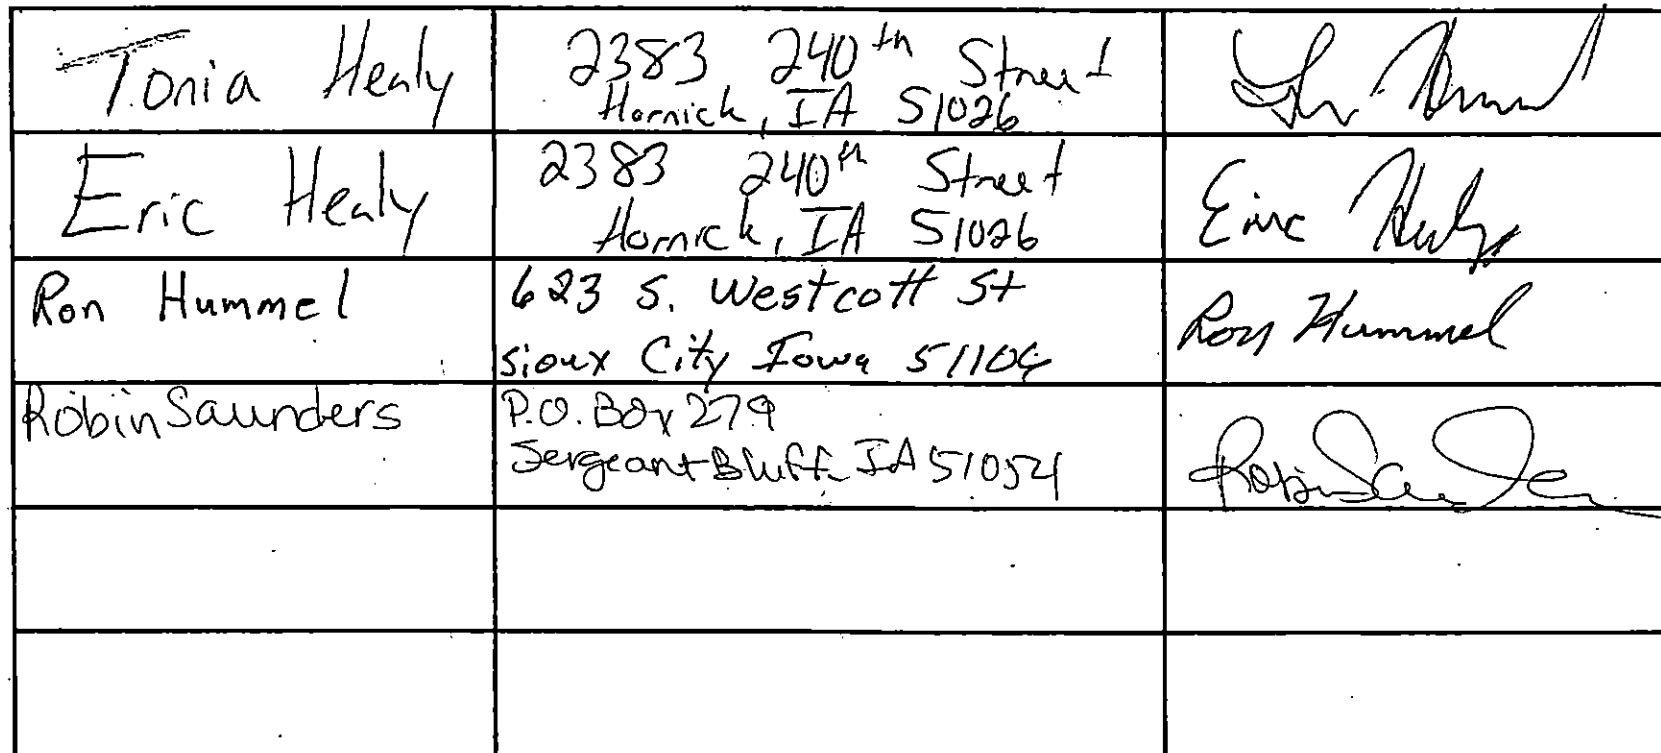 Tonia Healy
2383 240th Street
Hornick, IA 51026
Eric Healy
2383 240th Street
Hornick, IA 51026
Eric Healy
Ron Hummel
623 S. Westcott St
Sioux City Iowa 51106
Ron Hummel
Robin Saunders
P.O. Box 279
Sergeant Bluff IA 51054
Robin Saunders